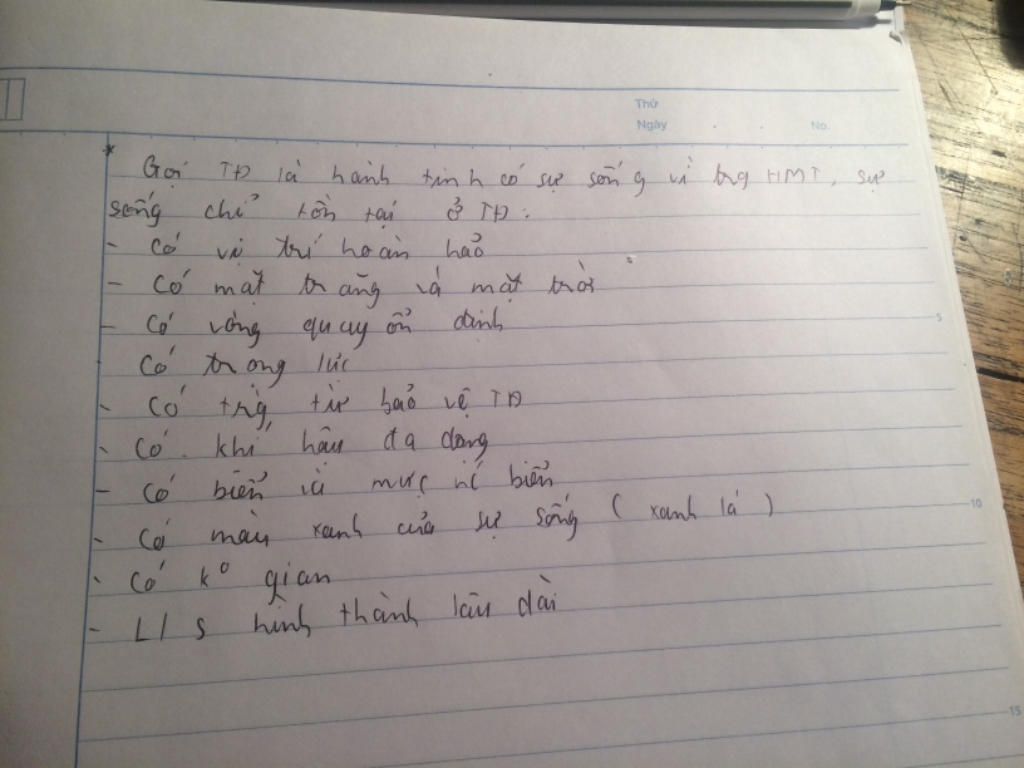 Thứ
Ngày . . No.
* Gọi TĐ là hành tinh có sự sống vì trg HMT, sự
sống chỉ tồn tại ở TĐ:
- Có vị trí hoàn hảo
- Có mặt trăng và mặt trời
- Có vòng quay ổn định
Có trong lực
- Có từ bảo vệ TĐ
- Có khí hậu đa dạng
- Có biển và mực nc biển
- Có màu xanh của sự sống ( xanh lá )
- Có ko gian
- L/s hình thành lâu dài
5
10
15